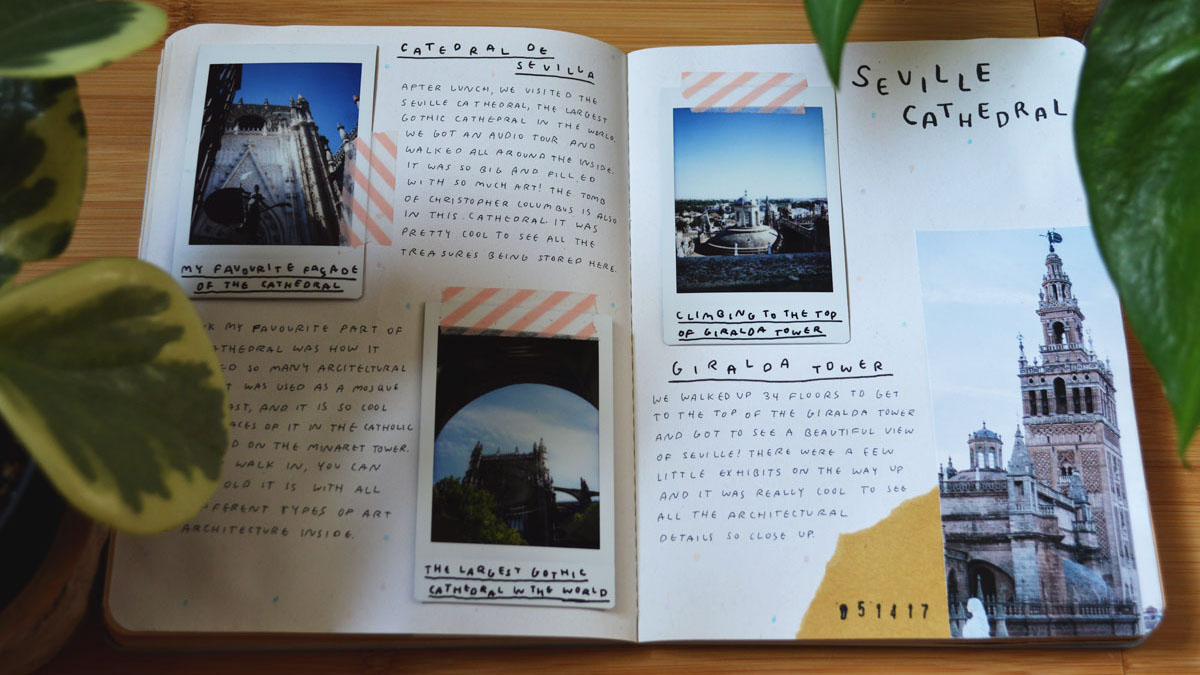 CATEDRAL DE
SEVILLA
AFTER LUNCH, WE VISITED THE
SEVILLE CATHEDRAL, THE LARGEST
GOTHIC CATHEDRAL IN THE WORLD.
WE GOT AN AUDIO TOUR AND
WALKED ALL AROUND THE INSIDE.
IT WAS SO BIG AND FILLED
WITH SO MUCH ART! THE TOMB
OF CHRISTOPHER COLUMBUS IS ALSO
IN THIS CATHEDRAL. IT WAS
PRETTY COOL TO SEE ALL THE
TREASURES BEING STORED HERE.
MY FAVOURITE FAÇADE
OF THE CATHEDRAL
MY FAVOURITE PART OF
WAS HOW IT
SO MANY ARCITECTURAL
WAS USED AS A MOSQUE
AND IT IS SO COOL
OF IT IN THE CATHOLIC
ON THE MINARET TOWER.
WALK IN, YOU CAN
IT IS WITH ALL
TYPES OF ART
ARCHITECTURE INSIDE.
THE LARGEST GOTHIC
CATHEDRAL IN THE WORLD
SEVILLE
CATHEDRAL
CLIMBING TO THE TOP
OF GIRALDA TOWER
GIRALDA TOWER
WE WALKED UP 34 FLOORS TO GET
TO THE TOP OF THE GIRALDA TOWER
AND GOT TO SEE A BEAUTIFUL VIEW
OF SEVILLE! THERE WERE A FEW
LITTLE EXHIBITS ON THE WAY UP
AND IT WAS REALLY COOL TO SEE
ALL THE ARCHITECTURAL
DETAILS SO CLOSE UP.
051417